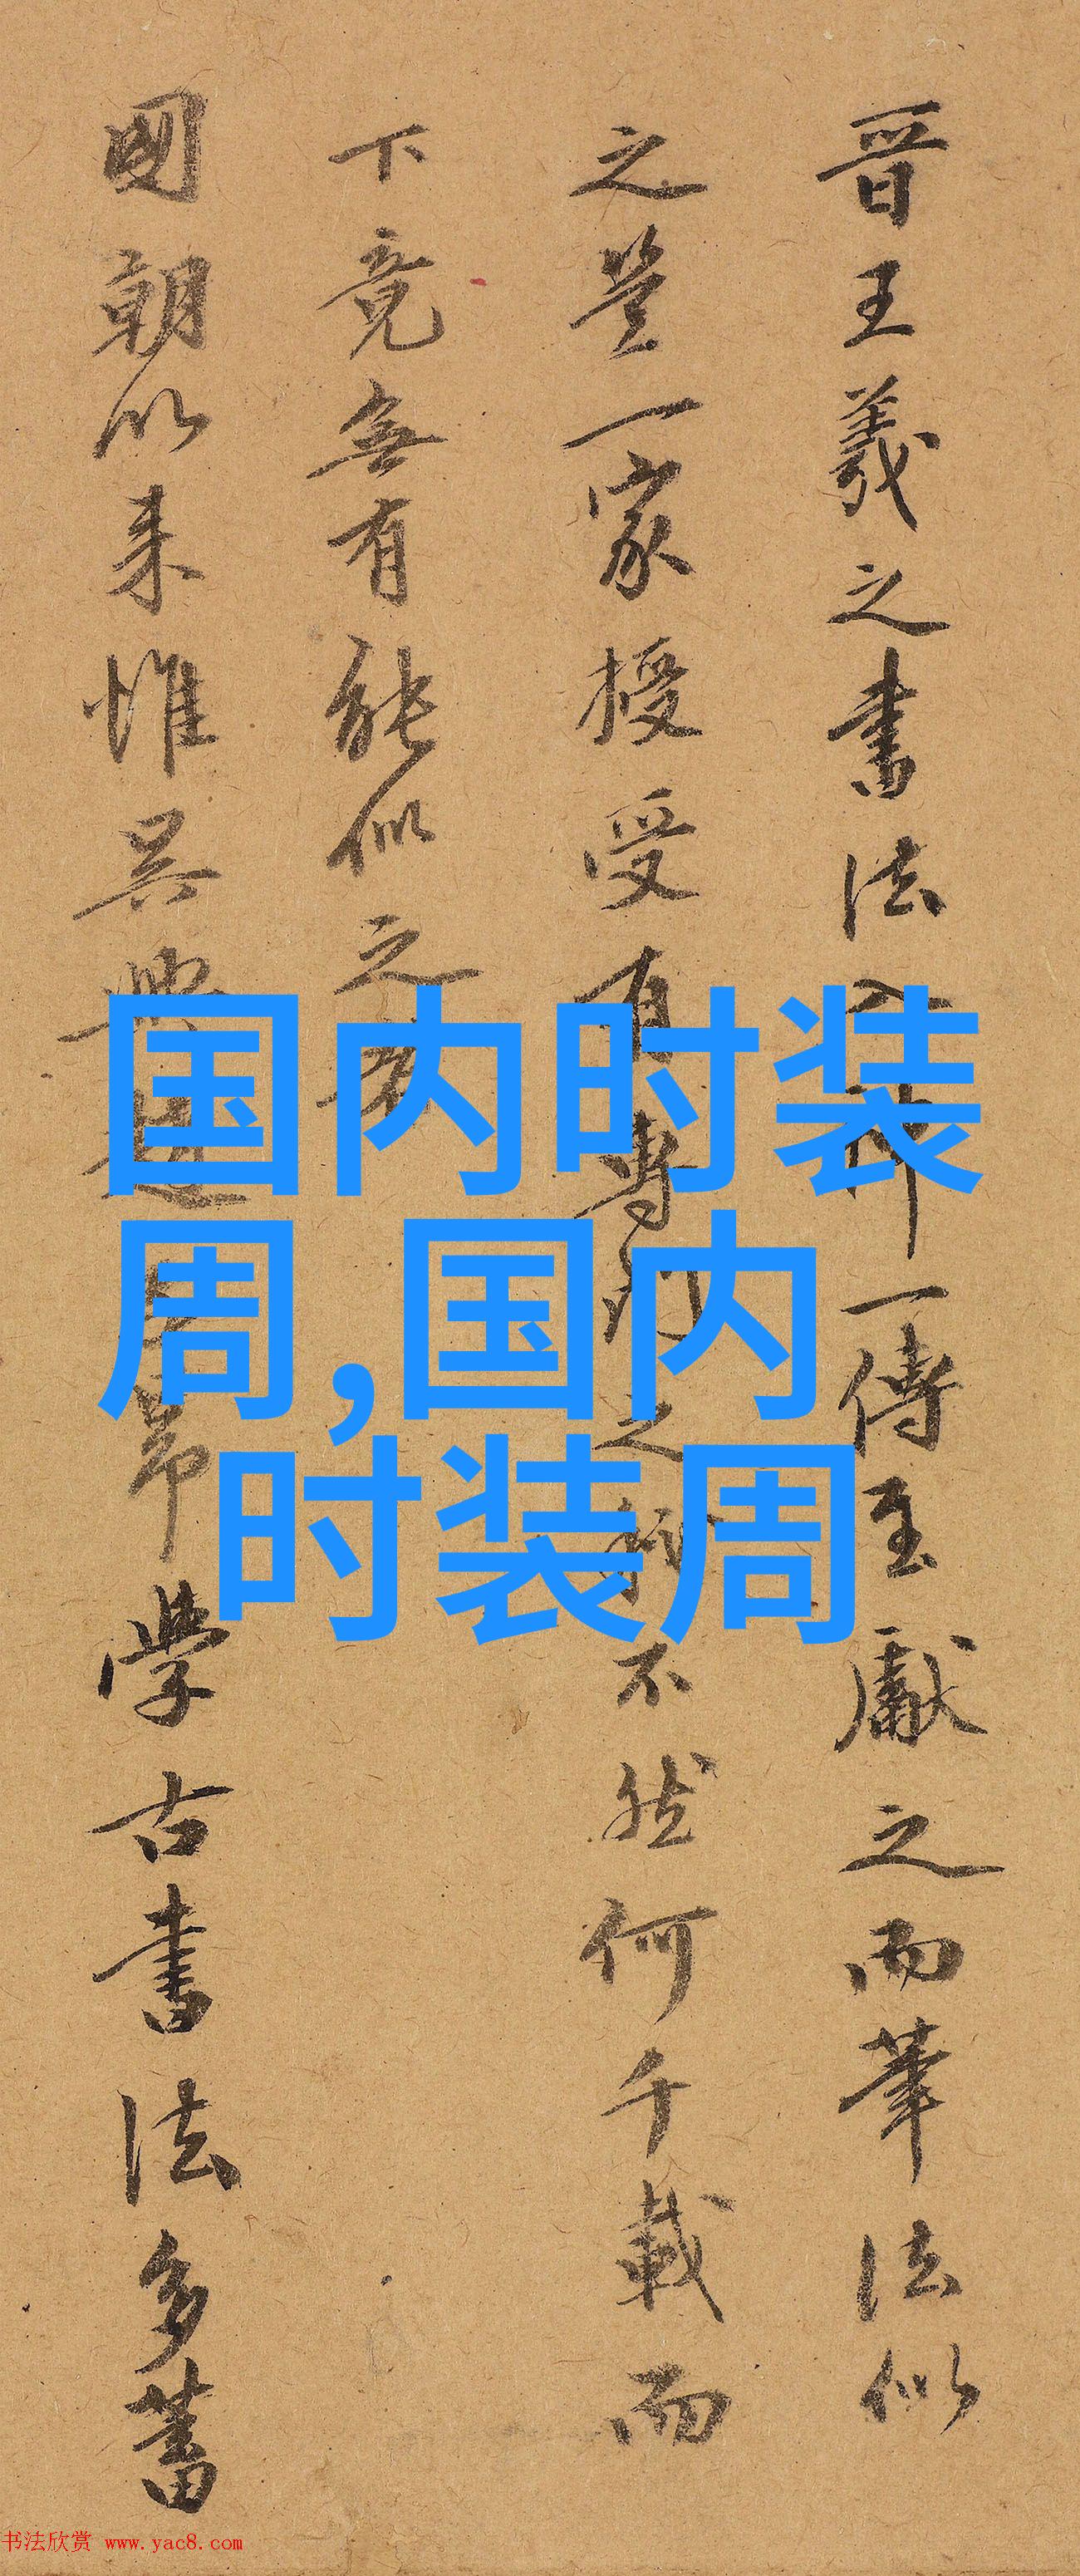 晋王羲之書法入神一傳至獻之而筆法似
之豈一家授受自有專門之
不然何千載而
下竟無有能似之者
國朝以来惟吴興趙
學古書法多蓄
国内时装
周,国内
时装周
书法欣赏 www.yac8.com